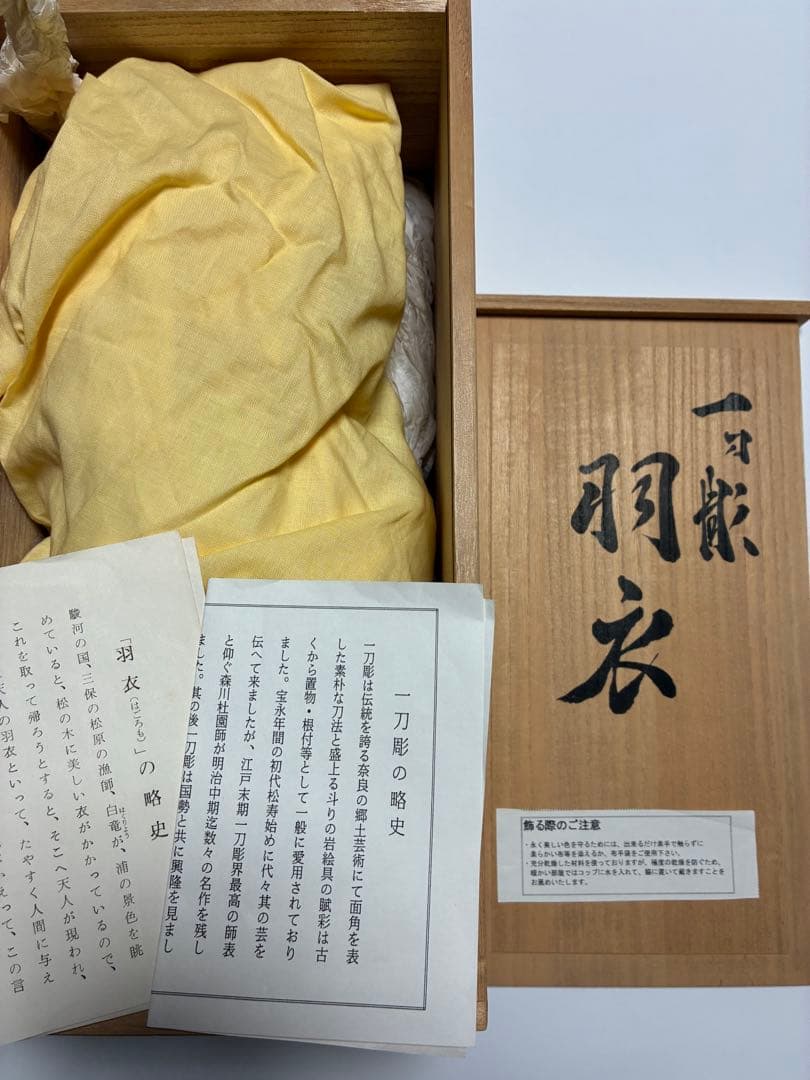 一刀彫
羽衣
飾る際のご注意
・永く美しい色を守るためには、出来るだけ素手で触らずに
柔らかい布等を添えるか、布手袋をご使用下さい。
・充分乾燥した材料を使っておりますが、極度の乾燥を防ぐため、
暖かい部屋ではコップに水を入れて、脇に置いて戴きますことを
お薦めいたします。
一刀彫の略史
一刀彫は伝統を誇る奈良の郷土芸術にて面角を表
した素朴な刀法と盛上る斗りの岩絵具の賦彩は古
くから置物・根付等として一般に愛用されており
ました。宝永年間の初代松寿始めに代々其の芸を
伝へて来ましたが、江戸末期一刀彫界最高の師表
と仰ぐ森川杜園師が明治中期迄数々の名作を残し
ました。其の後一刀彫は国勢と共に興隆を見まし
「羽衣(はごろも)」の略史
駿河の国、三保の松原の漁師、白竜(はくりょう)が、浦の景色を眺
めていると、松の木に美しい衣がかかっているので、
これを取って帰ろうとすると、そこへ天人が現われ、
天人の羽衣といって、たやすく人間に与え
かえって、この言